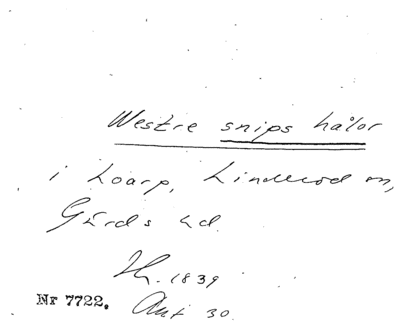 Westre snips hålor
i Loarp, Linderöd sn,
Gärds hd.
1839
Nr 7722. Ant 30.